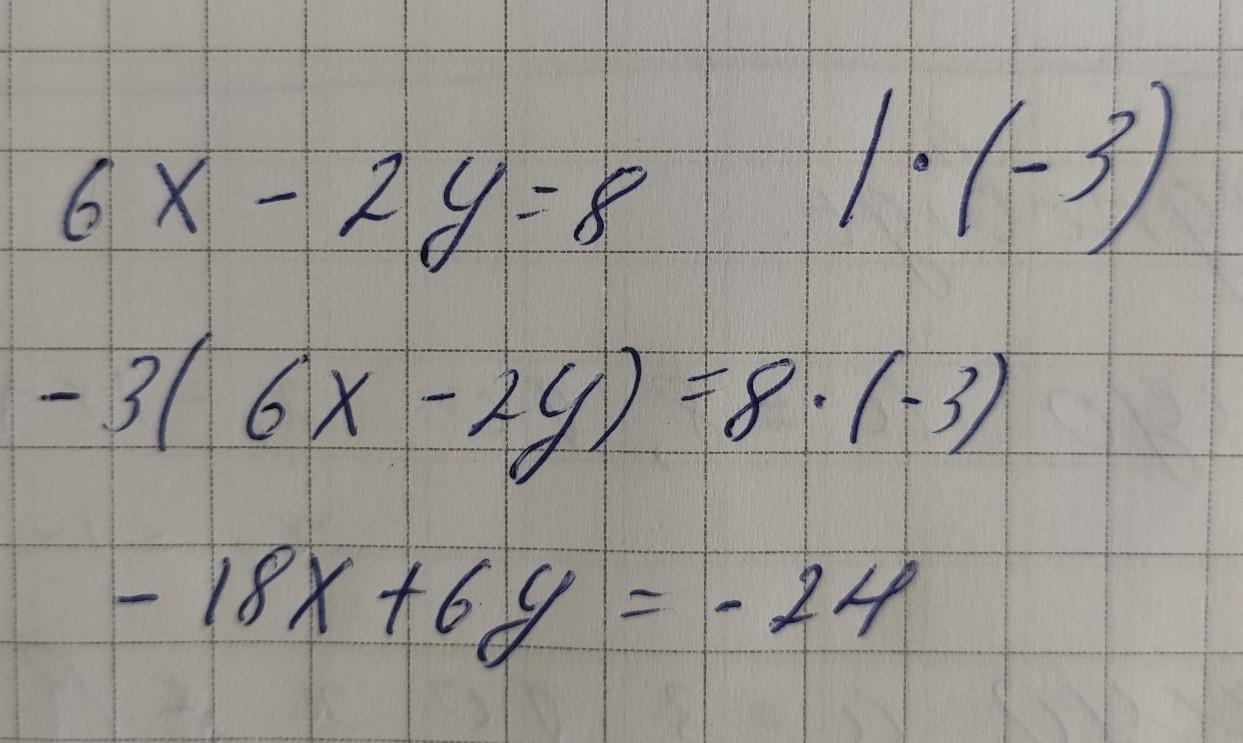 6x - 2y = 8 | · (-3)
-3( 6x - 2y) = 8 · (-3)
-18x + 6y = -24